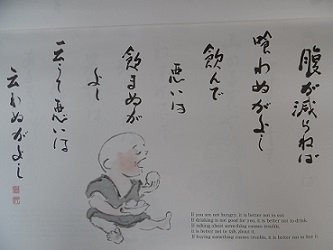 腹が減らねば
喰わぬがよし
飲んで
悪いは
飲まぬが
よし
云うて悪いは
云わぬがよし
If you are not hungry, it is better not to eat.
If drinking is not good for you, it is better not to drink.
If talking about something causes trouble,
it is better not to talk about it.
If buying something causes trouble, it is better not to buy it.